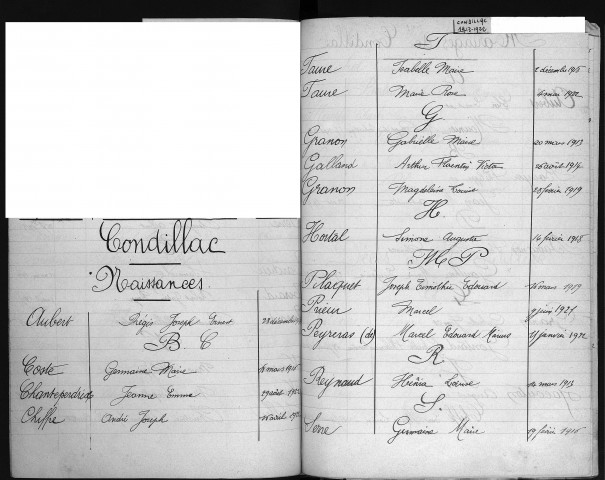 Condillac
Naissances
Aubert Régis Joseph Ernest 28 décembre
B. C
Coste Germaine Marie mars
Chanteperdrix Jeanne Emma août
Chiffe André Joseph avril
CONDILLAC
1913-1922
F
Faure Isabelle Marie décembre
Faure Marie Rose mai 1922
G
Granon Gabrielle Marie 20 mars 1913
Galland Arthur Florentin Victor 26 août 1914
Granon Magdeleine Louise 28 février 1919
H.
Hortal Simone Augusta 14 février 1918
M P
Placquet Joseph Timothée Edouard mars 1919
Prieur Marcel juin 1921
Peyreras (de) Marcel Edouard Marius janvier 1922
R
Reynaud Louise mars 1913
S.
Serre Germaine Marie 19 février 1916